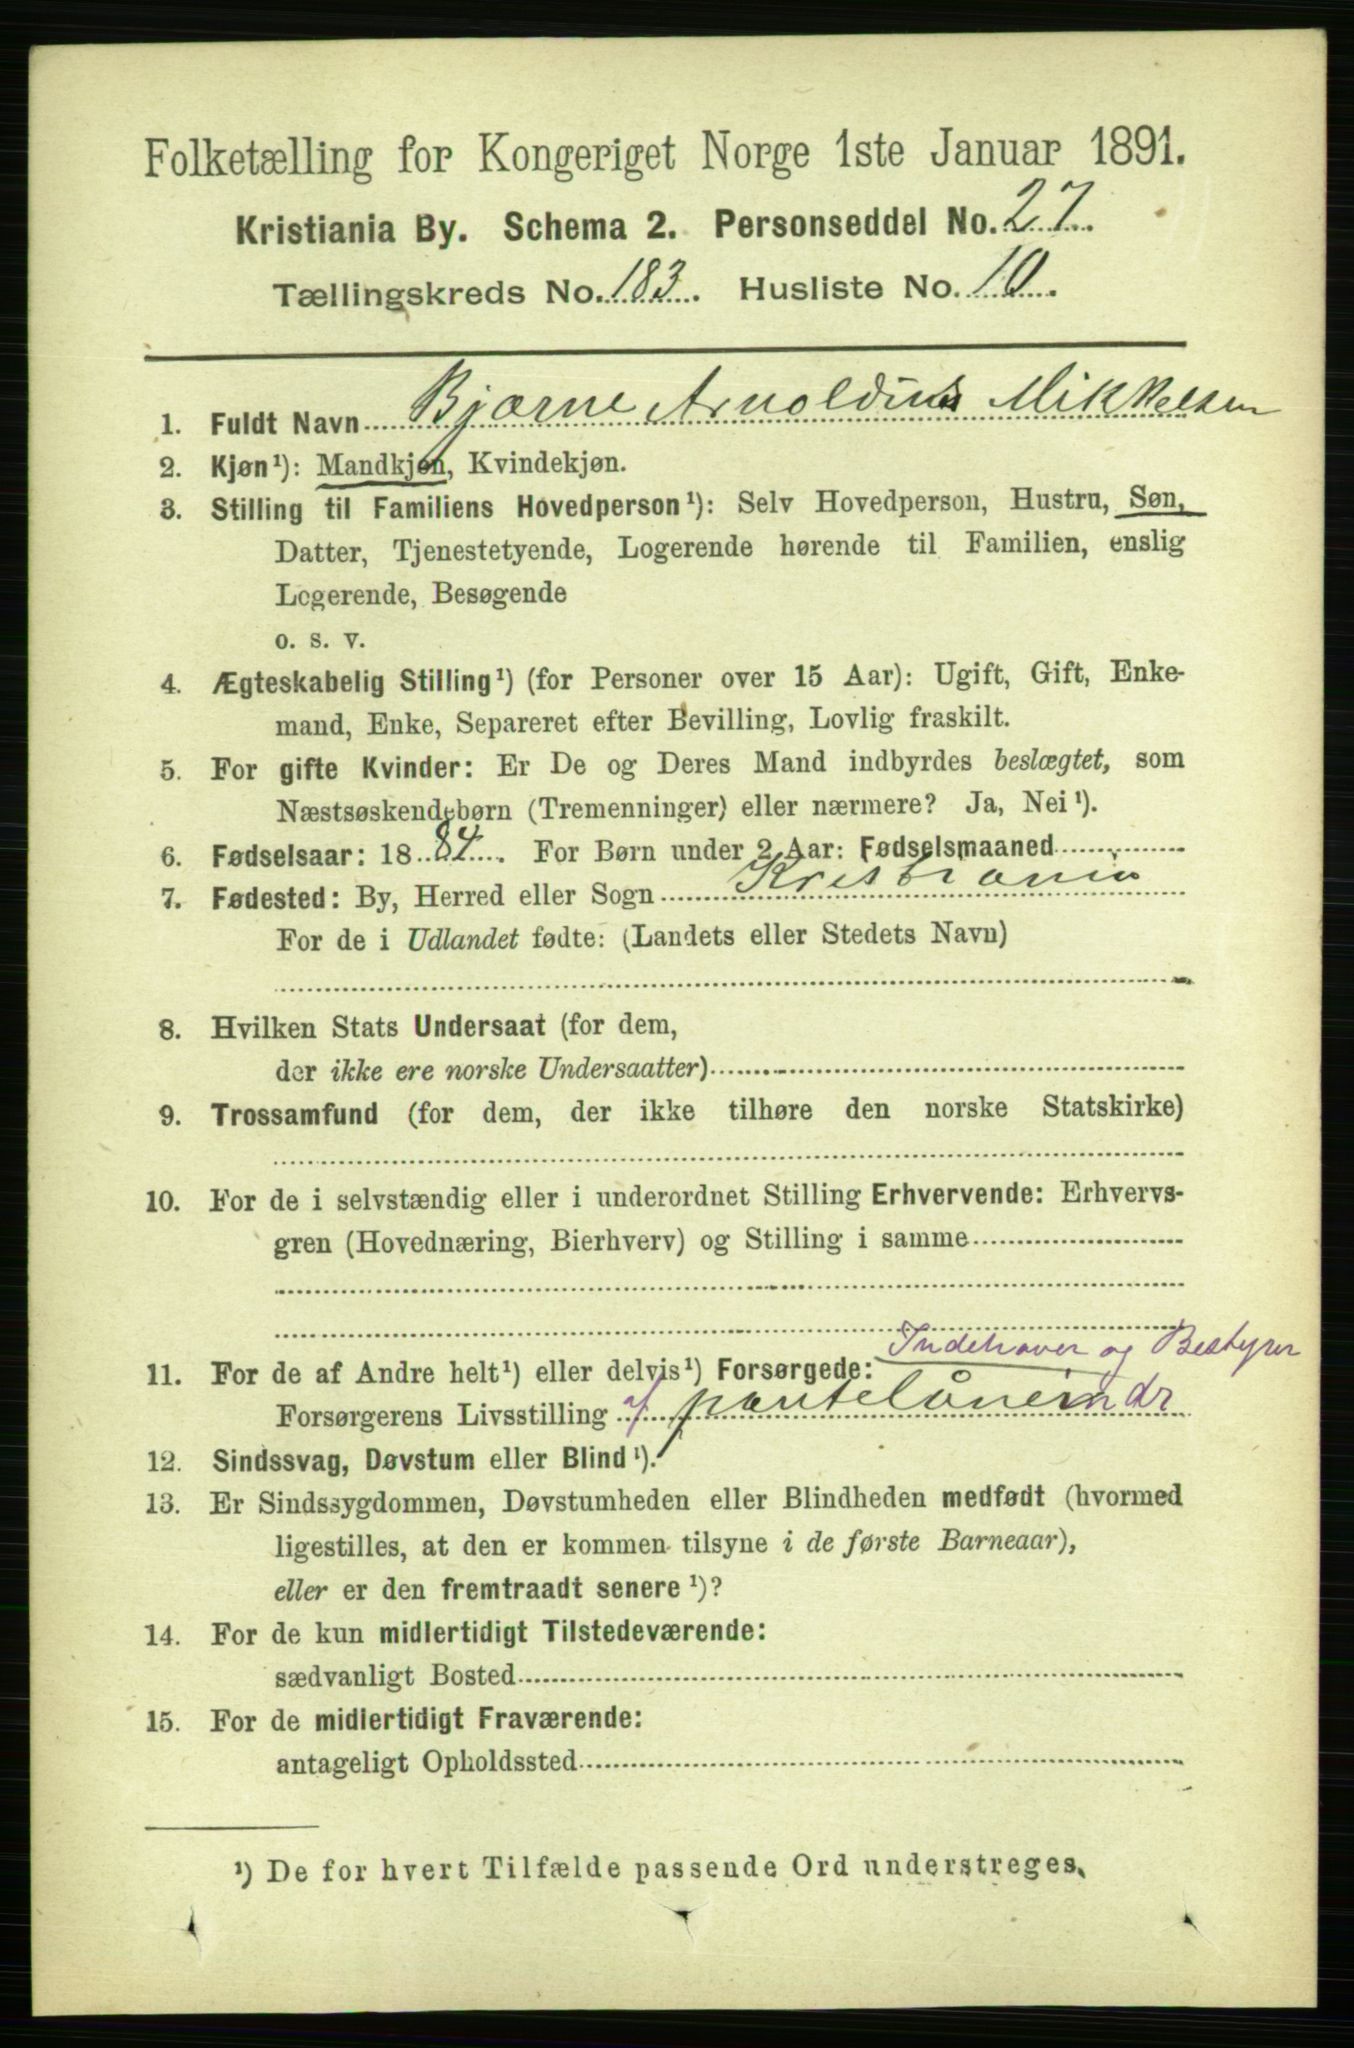 Folketælling for Kongeriget Norge 1ste Januar 1891.
Kristiania By. Schema 2. Personseddel No. 27.
Tællingskreds No. 183. Husliste No. 10.
1. Fuldt Navn Bjarne Arnoldius Mikkelsen
2. Kjøn¹): Mandkjøn, Kvindekjøn.
3. Stilling til Familiens Hovedperson¹): Selv Hovedperson, Hustru, Søn,
Datter, Tjenestetyende, Logerende hørende til Familien, enslig
Logerende, Besøgende
o. s. v.
4. Ægteskabelig Stilling¹) (for Personer over 15 Aar): Ugift, Gift, Enke-
mand, Enke, Separeret efter Bevilling, Lovlig fraskilt.
5. For gifte Kvinder: Er De og Deres Mand indbyrdes beslægtet, som
Næstsøskendebørn (Tremenninger) eller nærmere? Ja, Nei¹).
6. Fødselsaar: 1884. For Børn under 2 Aar: Fødselsmaaned
7. Fødested: By, Herred eller Sogn Kristiania
For de i Udlandet fødte: (Landets eller Stedets Navn)
8. Hvilken Stats Undersaat (for dem,
der ikke ere norske Undersaatter)
9. Trossamfund (for dem, der ikke tilhøre den norske Statskirke)
10. For de i selvstændig eller i underordnet Stilling Erhvervende: Erhvervs-
gren (Hovednæring, Bierhverv) og Stilling i samme
Indehaver og Bestyrer
11. For de af Andre helt¹) eller delvis¹) Forsørgede:
Forsørgerens Livsstilling af pantelåneindr
12. Sindssvag, Døvstum eller Blind¹).
13. Er Sindssygdommen, Døvstumheden eller Blindheden medfødt (hvormed
ligestilles, at den er kommen tilsyne i de første Barneaar),
eller er den fremtraadt senere¹)?
14. For de kun midlertidigt Tilstedeværende:
sædvanligt Bosted
15. For de midlertidigt Fraværende:
antageligt Opholdssted
¹) De for hvert Tilfælde passende Ord understreges.